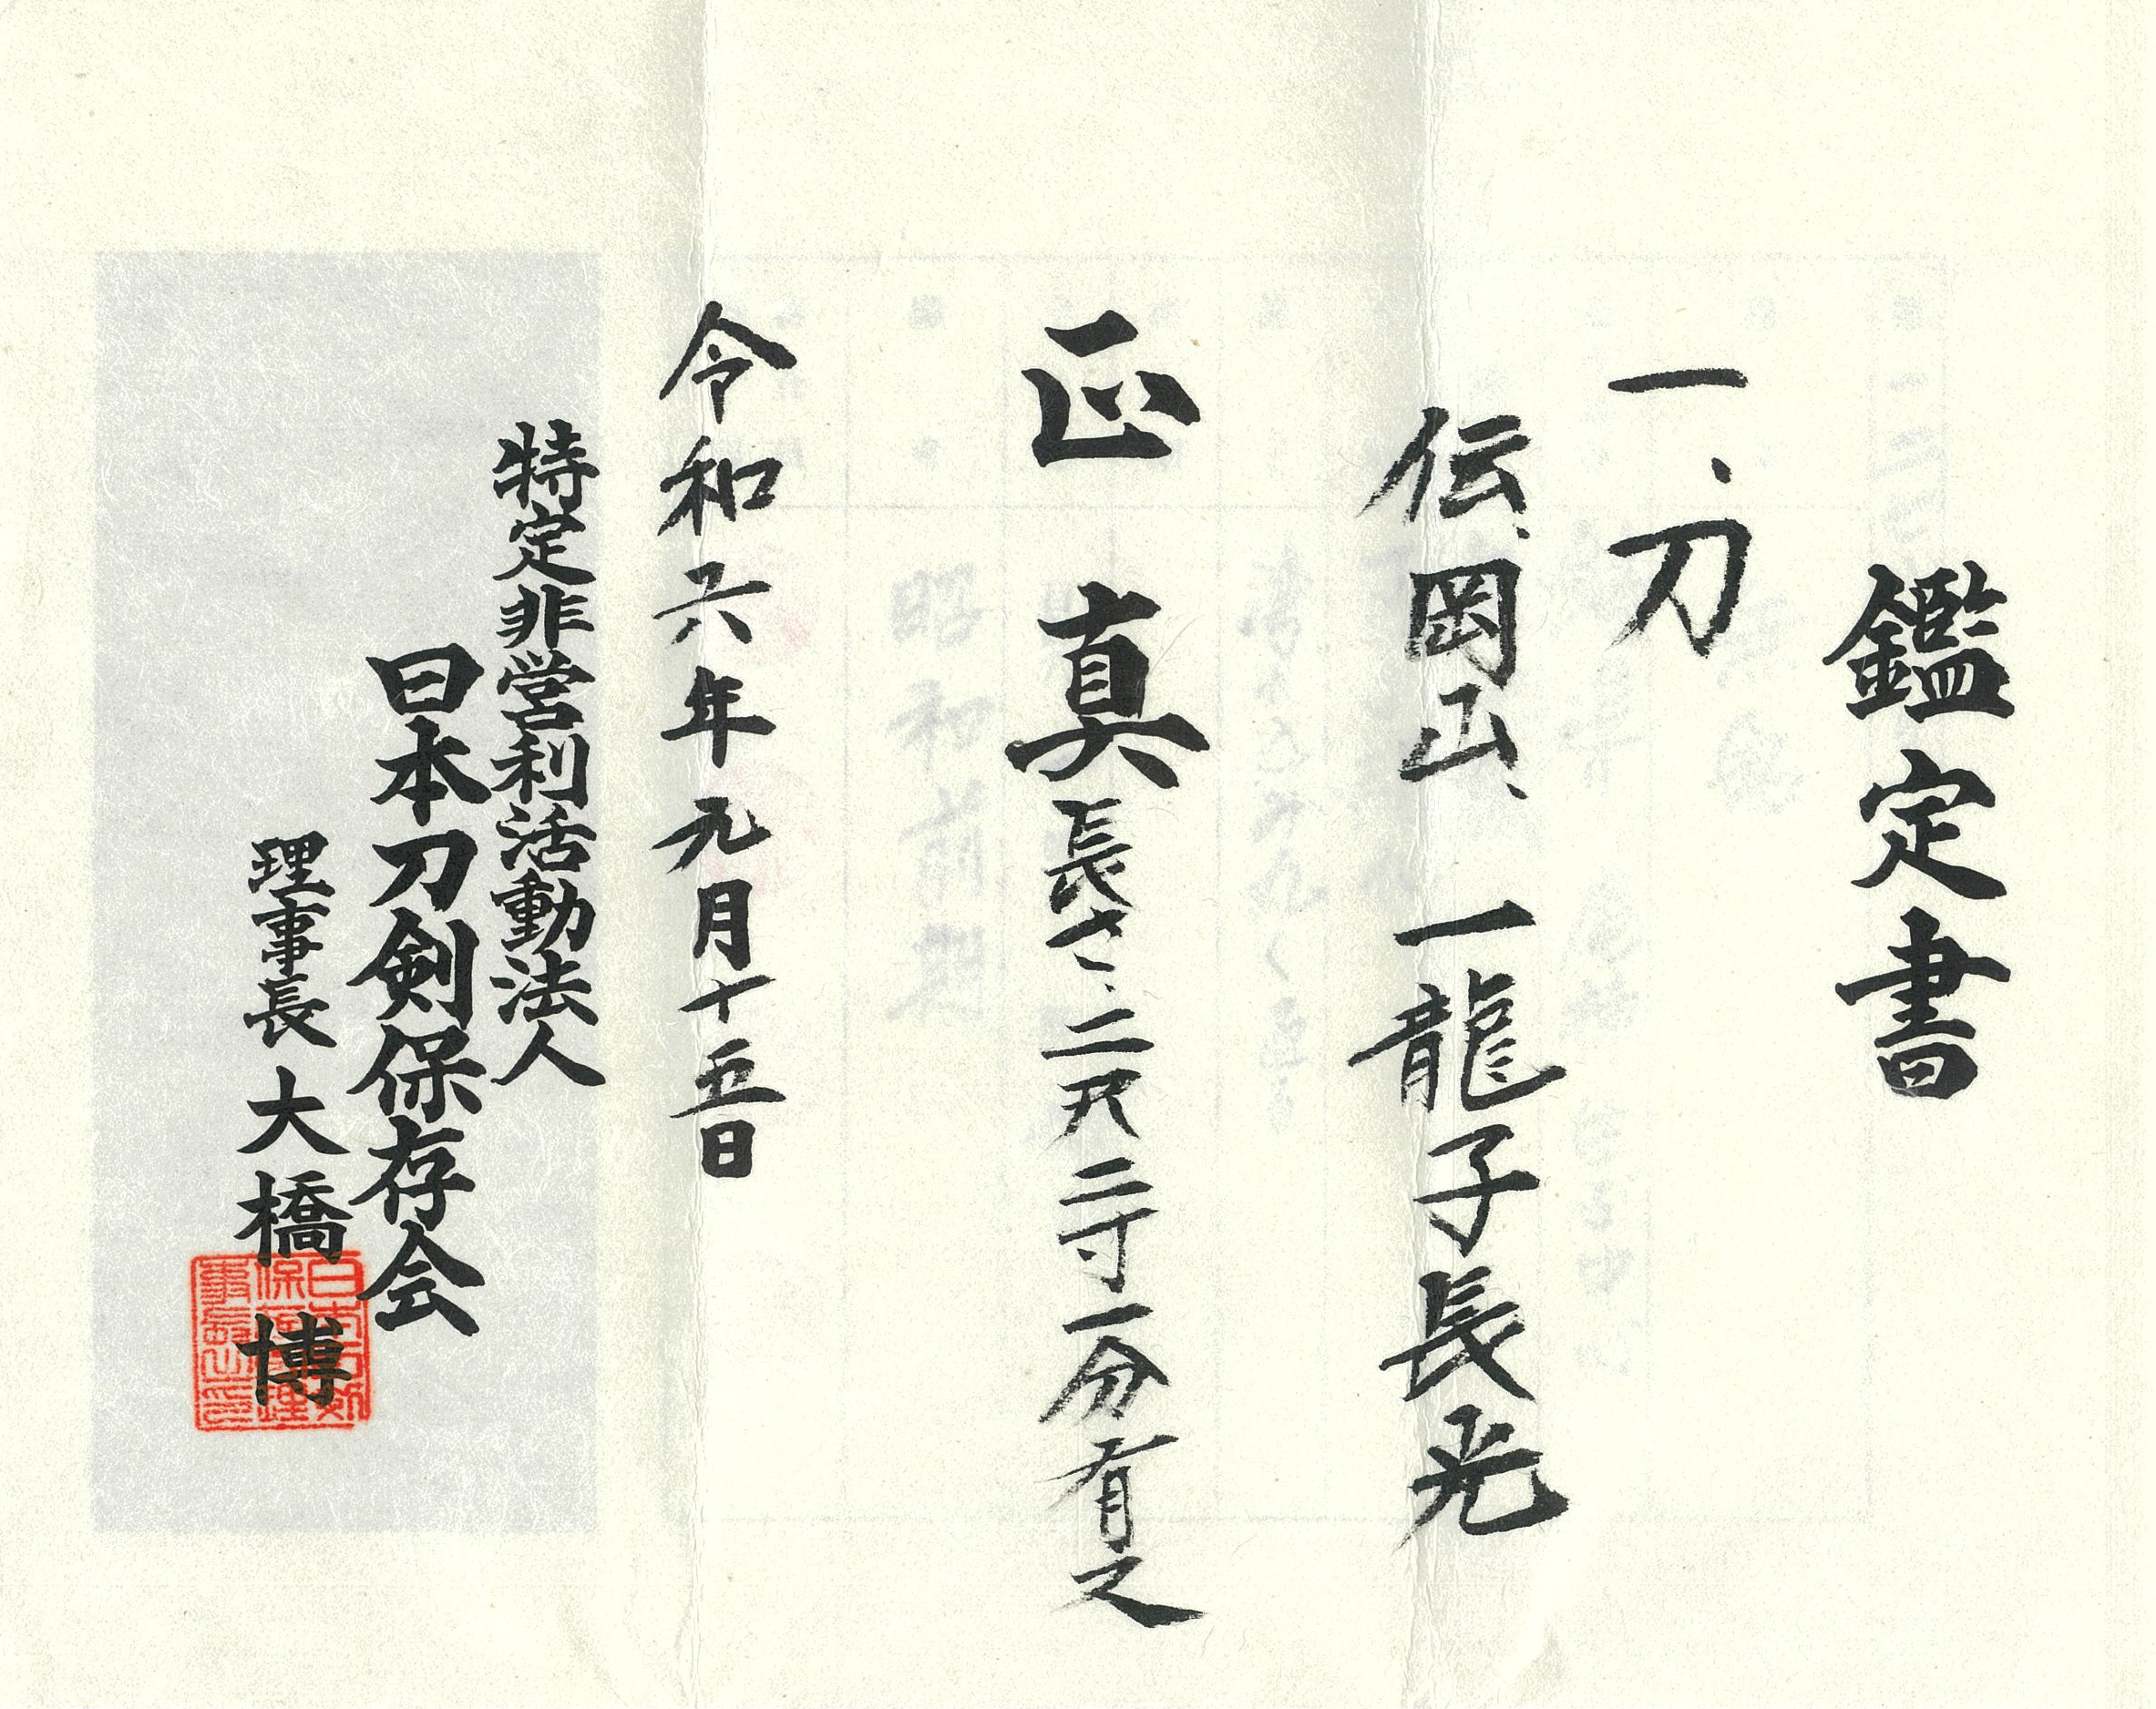 鑑定書
一、刀
伝岡山、一龍子長光
正真 長さ、二尺二寸一分有之
令和六年九月十五日
特定非営利活動法人
日本刀剣保存会
理事長 大橋 博
昭和前期